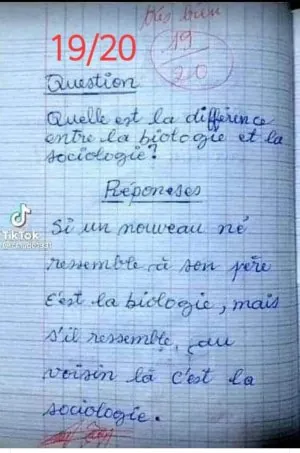 très bien
19/20
19
20
Question
Quelle est la différence
entre la biologie et la
sociologie?
Réponses
Si un nouveau né
ressemble à son père
c'est la biologie, mais
s'il ressemble, au
voisin là c'est la
sociologie.
TikTok